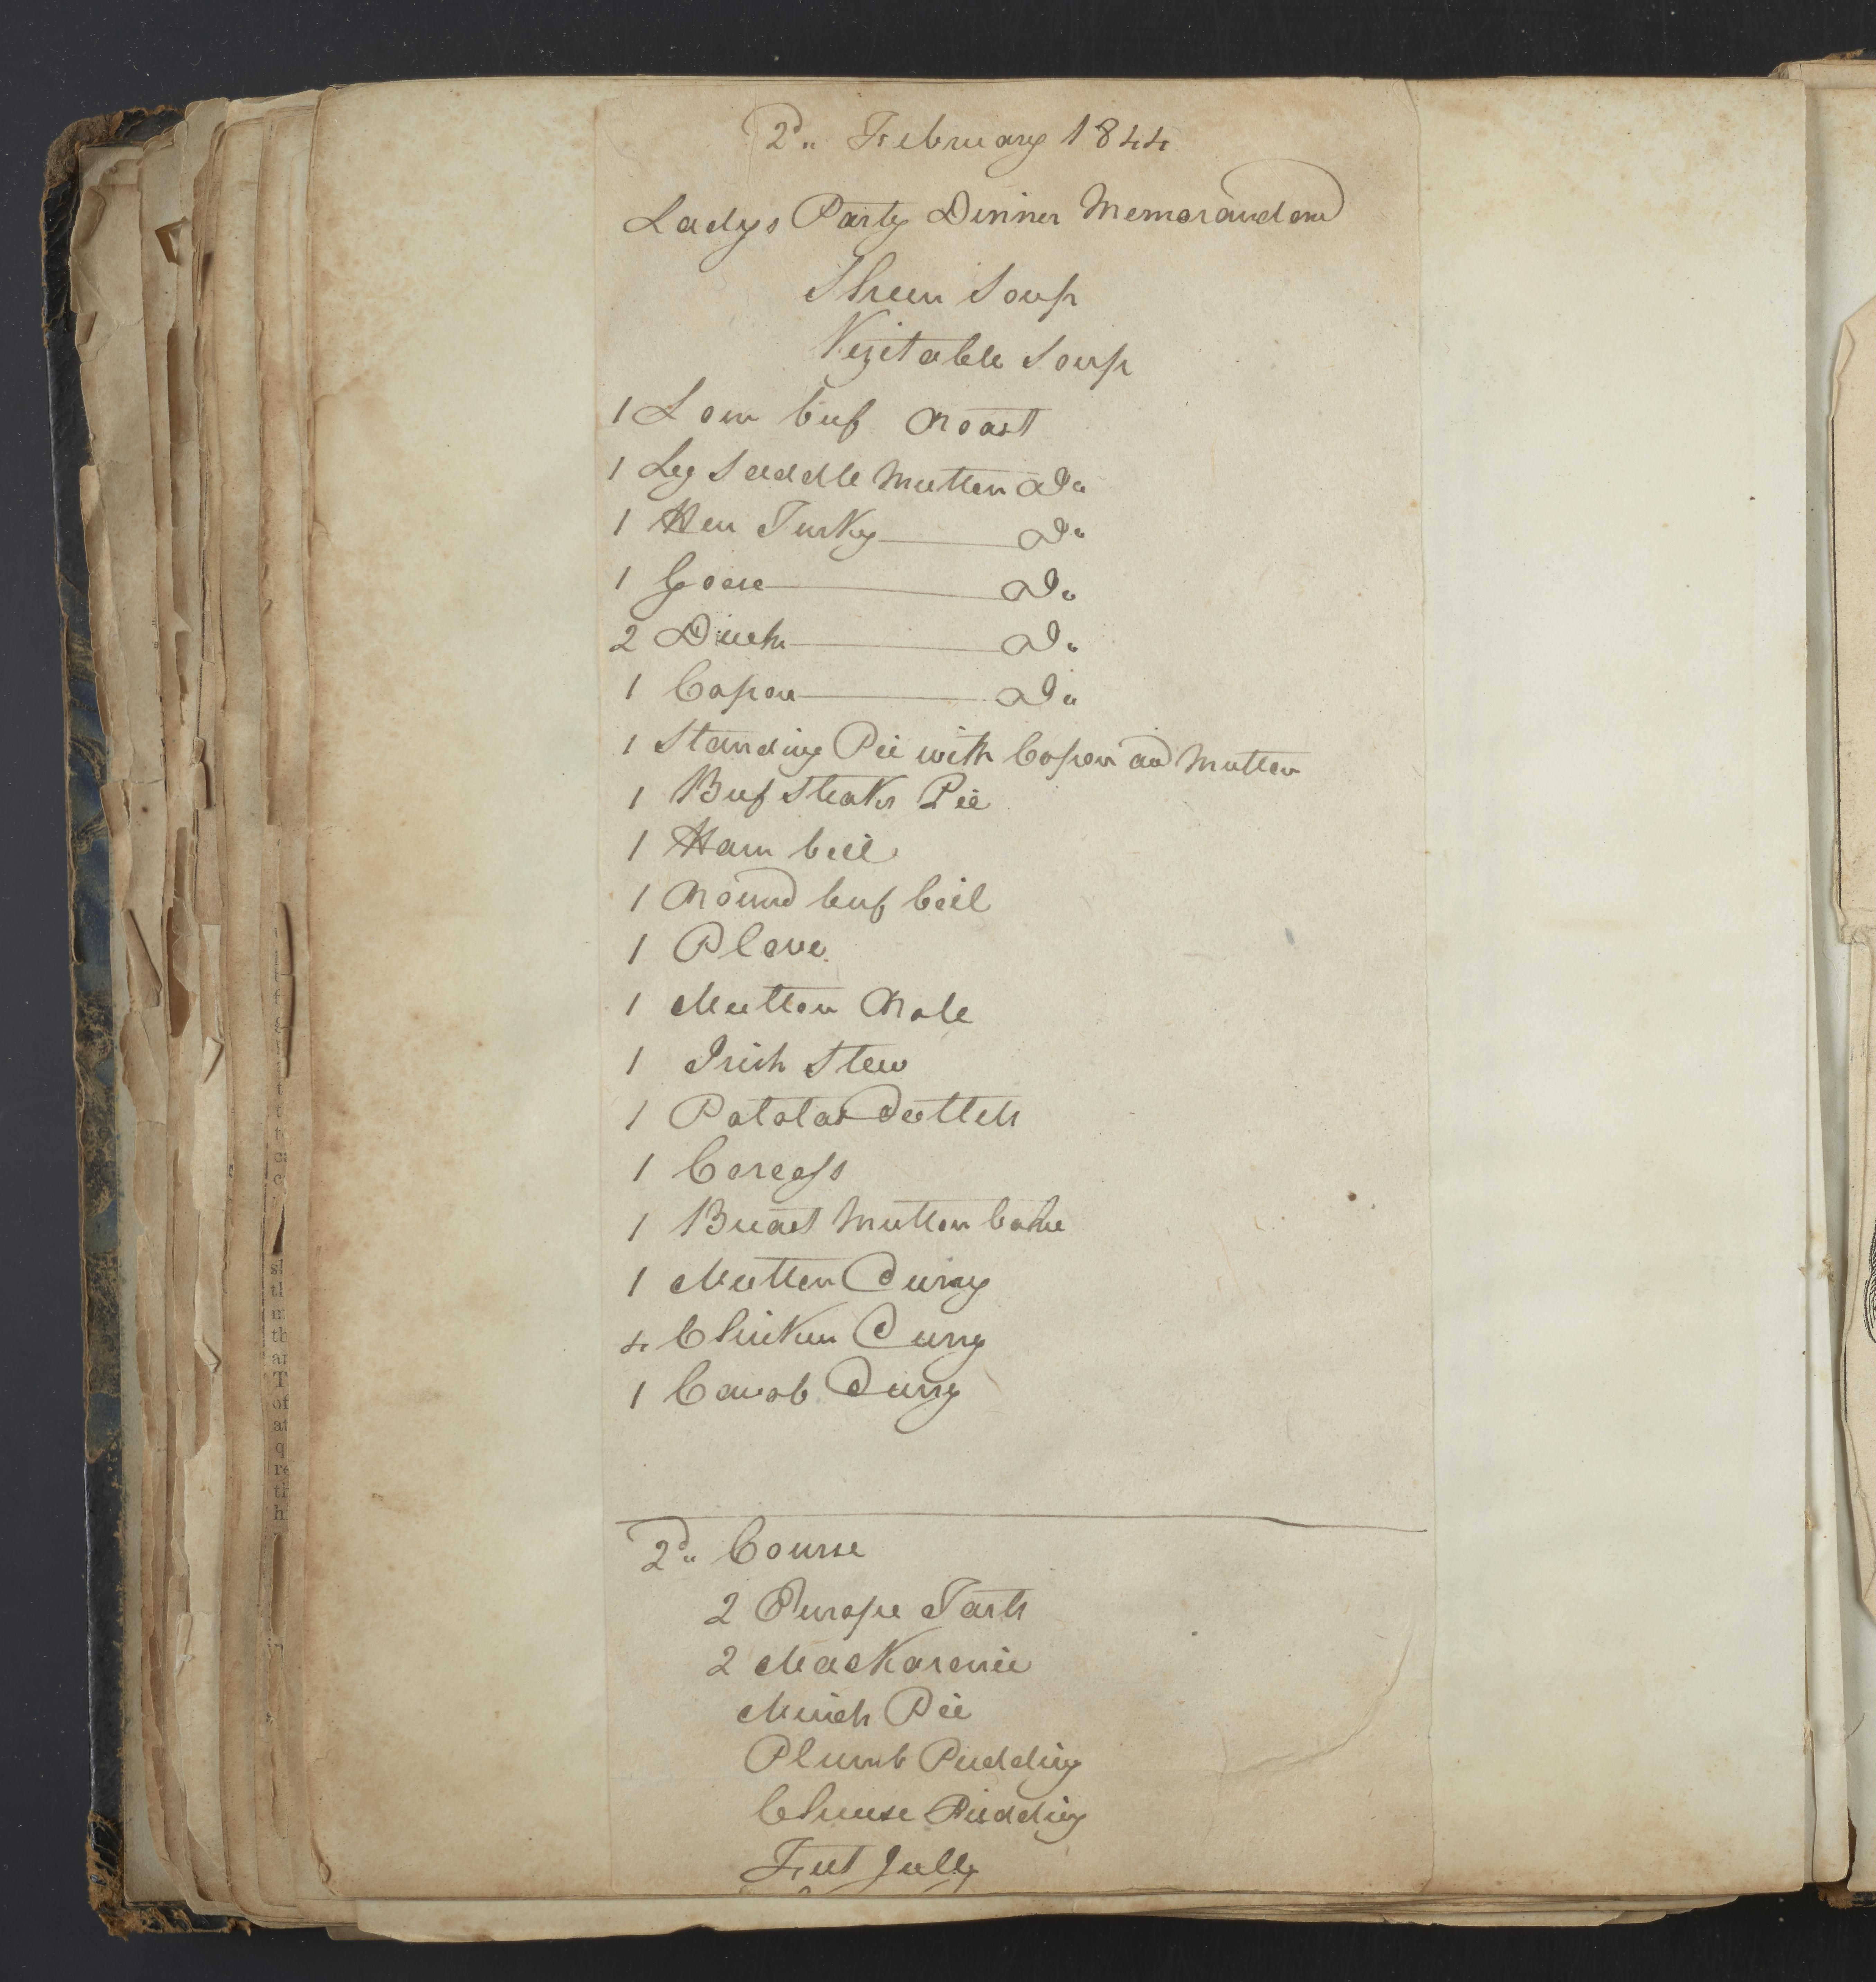 2d.. February 1844
Ladys Party Dinner Memorandom
Sheen Soup
Vegitable Soup
1 Loin beef Roast
1 Leg Saddle Mutton Do
1 Hen Turky Do
1 Goose Do
2 Duck Do
1 Capon Do
1 Standing Pie with Capon and Mutton
1 Beef Steaks Pie
1 Ham boil
1 Round beef boil
1 Plove
1 Mutton Role
1 Irish Stew
1 Potatoe Cutteh
1 Carcass
1 Breast Mutton bake
1 Mutton Curry
4 Chicken Curry
1 Cawob Curry
2d.. Course
2 Europe Tarts
2 MacKaronie
Minch Pie
Plumb Pudding
Cheese Pudding
Feet Jelly
sl
tl
m
th
ar
T
of
at
q
re
th
h